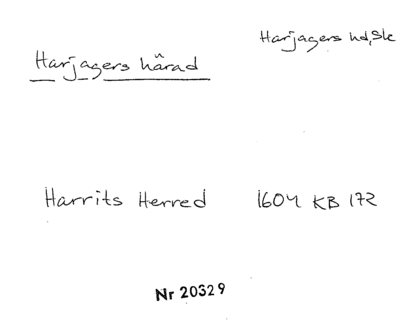 Harjagers hd, Sk
Harjagers härad
Harrits Herred 1604 KB 172
Nr 20329